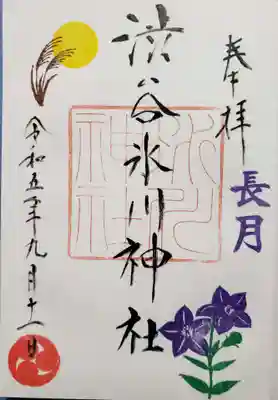 奉拝
長月
渋谷氷川神社
令和五年九月十一日
氷川
神社